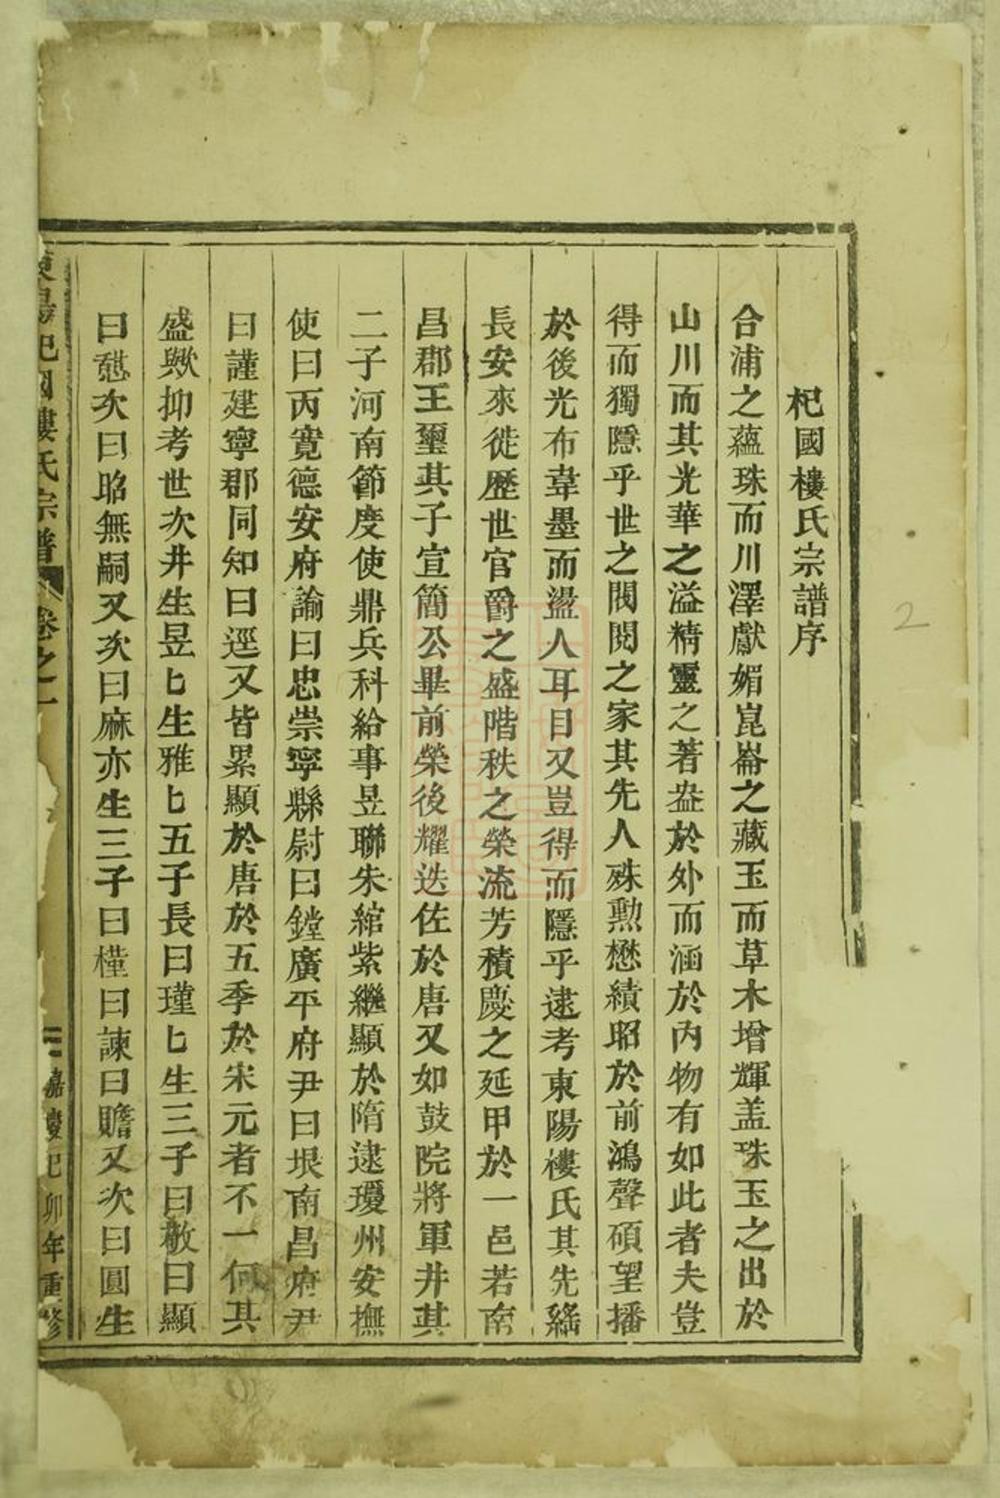 杞國樓氏宗譜序
合浦之蘊珠而川澤獻媚崑崙之藏玉而草木增輝盖珠玉之出於
山川而其光華之溢精靈之著盎於外而涵於內物有如此者夫豈
得而獨隱乎世之閥閱之家其先人殊勲懋績昭於前鴻聲碩望播
於後光布韋墨而盪人耳目又豈得而隱乎逮考東陽樓氏其先繇
長安來徙歷世官爵之盛階秩之榮流芳積慶之延甲於一邑若南
昌郡王璽其子宣簡公畢前榮後耀迭佐於唐又如鼓院將軍井其
二子河南節度使鼎兵科給事昱聯朱綰紫繼顯於隋逮瓊州安撫
使曰丙寬德安府諭曰忠崇寧縣尉曰鏜廣平府尹曰垠南昌府尹
曰謹建寧郡同知曰逕又皆累顯於唐於五季於宋元者不一何其
盛歟抑考世次井生昱匕生雅匕五子長曰瑾匕生三子曰敬曰顯
曰懇次曰昭無嗣又次曰麻亦生三子曰槿曰諫曰贍又次曰圓生
東陽杞國樓氏宗譜 卷之一 嘉慶己卯年重修
2